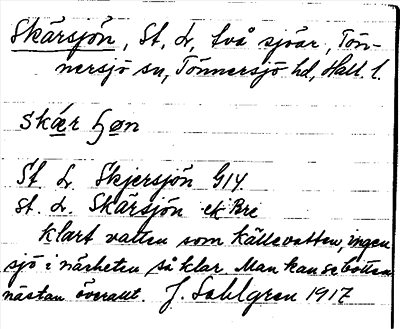 Skärsjön, St, L, två sjöar, Tön-
nersjö sn, Tönnersjö hd, Hall. l.
skær ɧøn
St L Skjersjön G14
St. L. Skärsjön ek Bre
klart vatten som källevatten, ingen
sjö i närheten så klar. Man kan se botten
nästan överallt. J. Sahlgren 1917